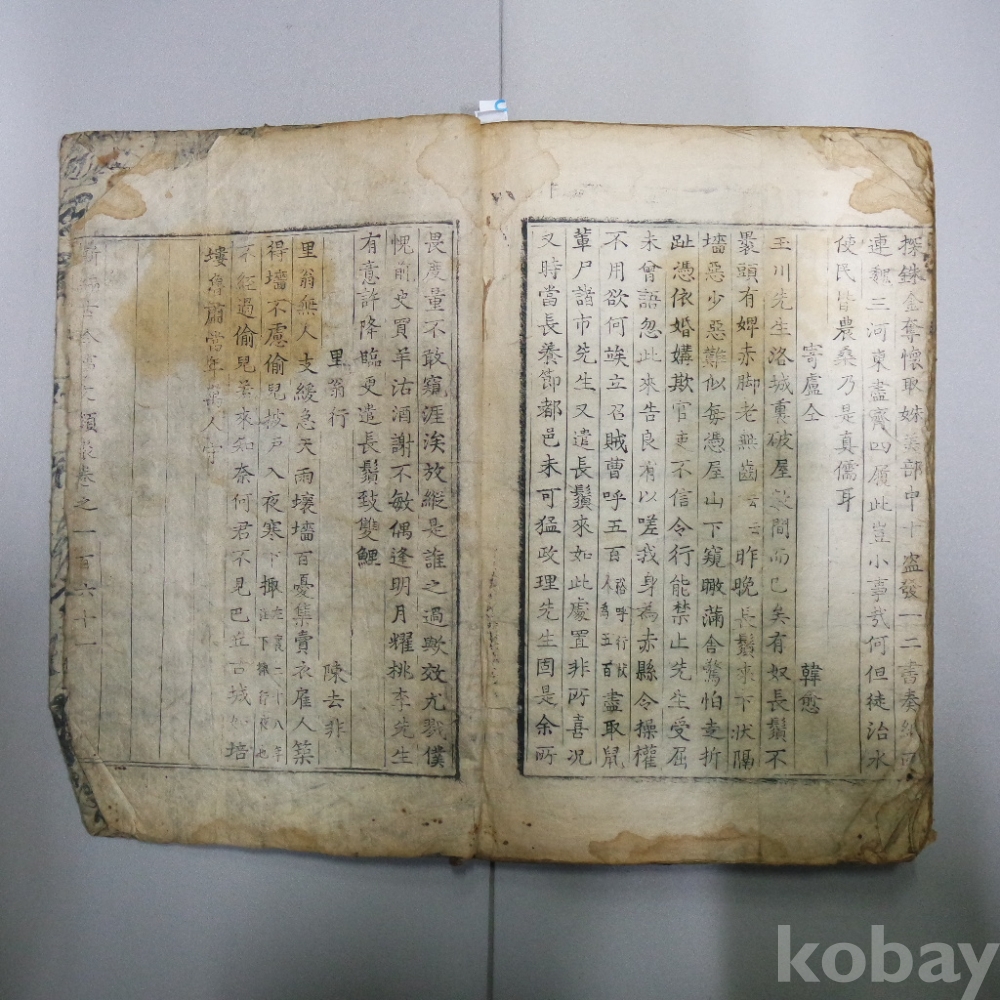 探銖金奪懷取姝美部中十盜發一二書奏
連魏三河東盡齊四履此豈小事哉何但徒治水
使民皆農桑乃是真儒耳
寄盧仝 韓愈
玉川先生洛城裏破屋數間而已矣有奴長鬚不
裹頭有婢赤脚老無齒云云昨晚長鬚來下狀隔
墻惡少惡難似每憑屋山下窺瞰滿舍驚怕走折
趾憑依婚媾欺官吏不信令行能禁止先生受屈
未曾語忽此來告良有以嗟我身為赤縣令操權
不用欲何竢立召賊曹呼五百盡取鼠
輩尸諸市先生又遣長鬚來如此處置非所喜況
又時當長養節都邑未可猛政理先生固是余所
畏度量不敢窺涯涘放縱是誰之過歟效尤戮僕
愧前史買羊沽酒謝不敏偶逢明月耀桃李先生
有意許降臨更遣長鬚致雙鯉
里翁行 陳去非
里翁無人支緩急天雨壞墻百憂集賣衣雇人築
得墻不慮偷兒披戶入夜寒下
不經過偷兒若來知奈何君不見巴丘古城如培
塿魯肅當年萬人守
古今 文類聚卷之一百六十一
kobay